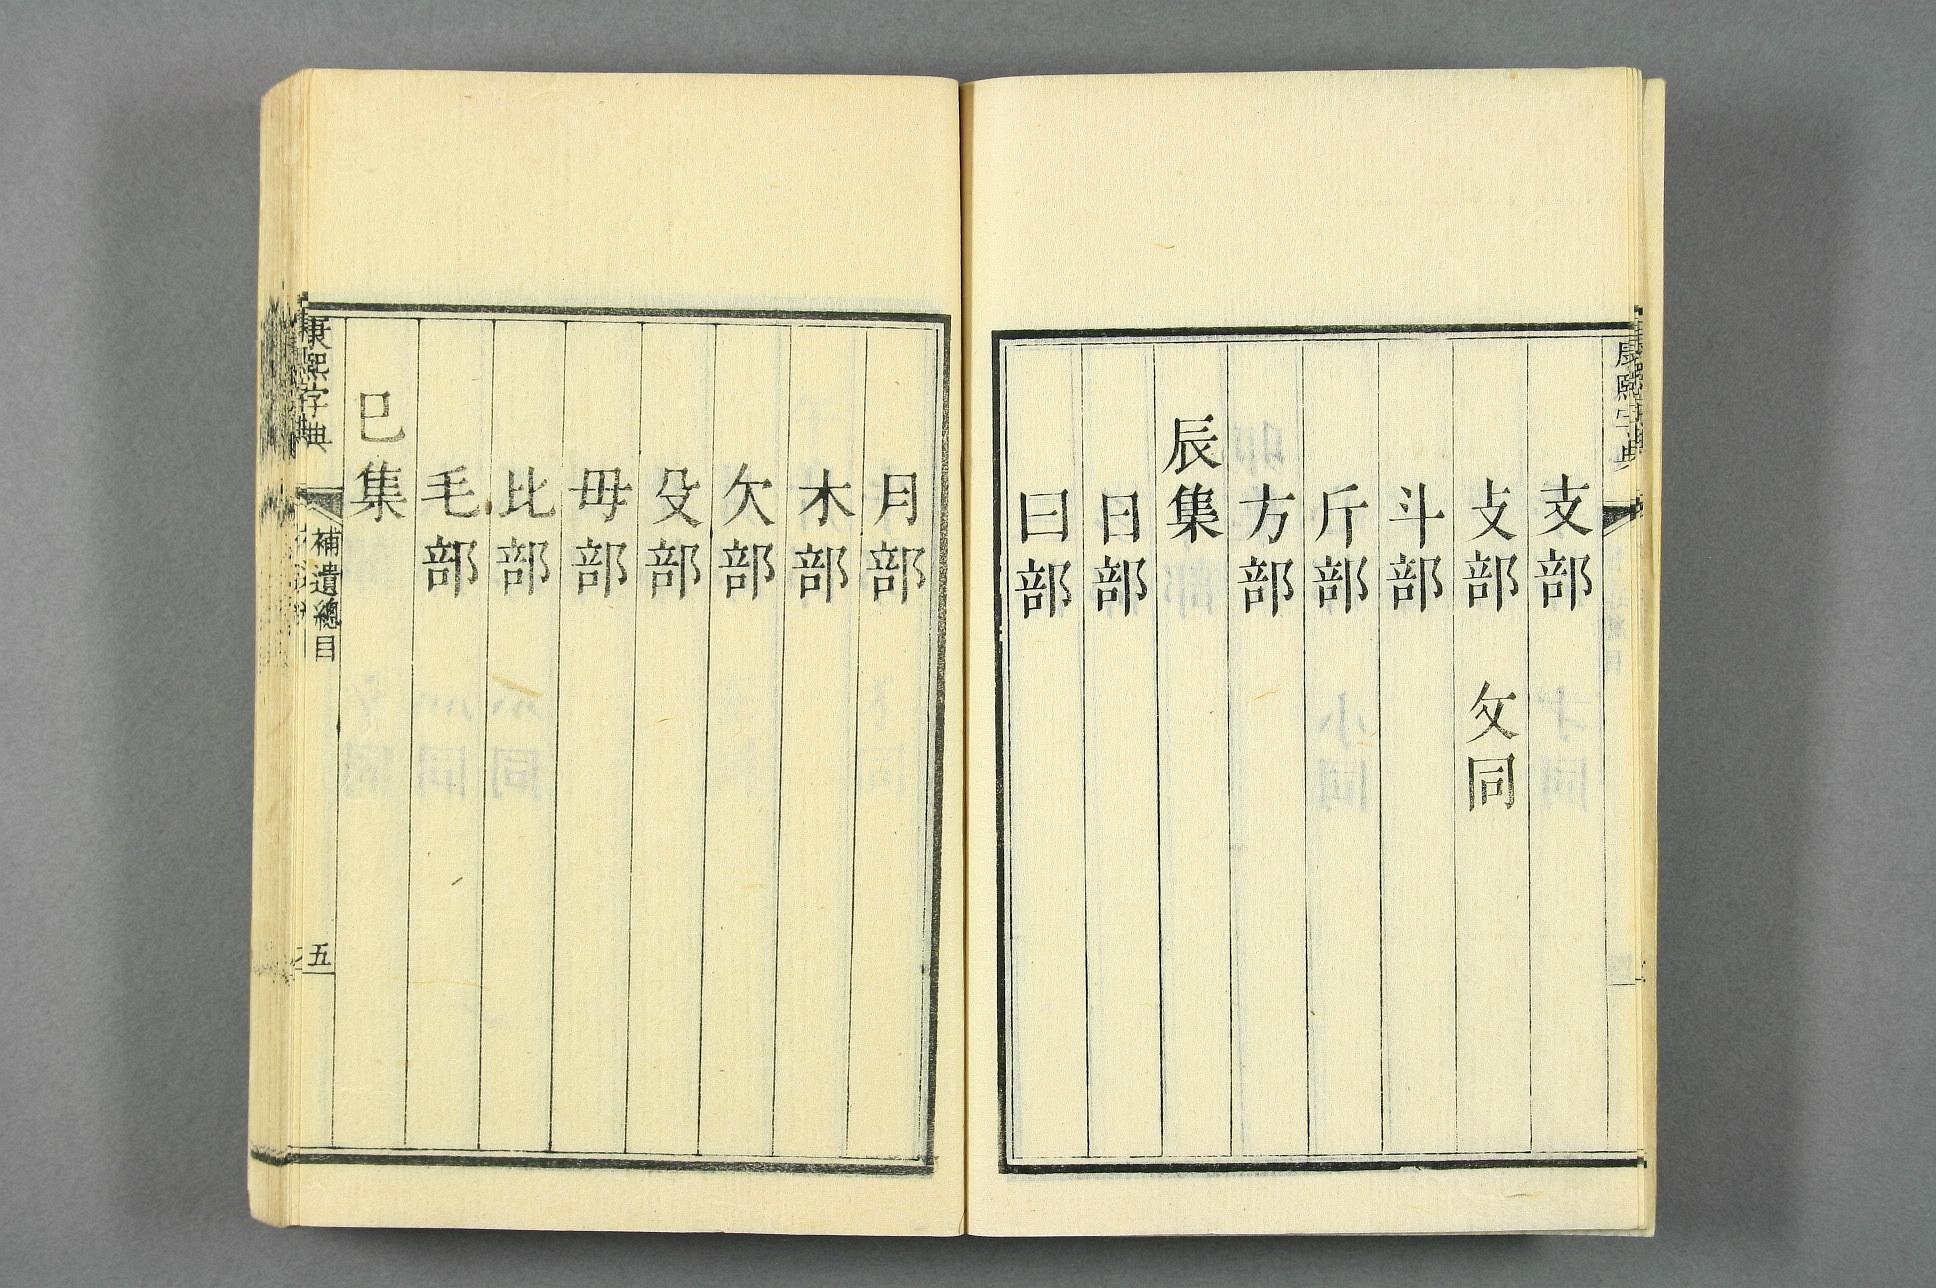 康熙字典
支部
攴部 攵同
斗部
斤部
方部
辰集
日部
曰部
月部
木部
欠部
殳部
毋部
比部
毛部
巳集
康熙字典 補遺總目 五